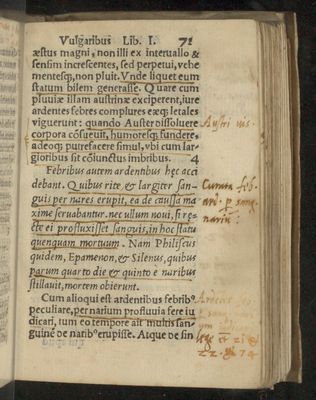 Vulgaribus Lib. I. 71
æstus magni, non illi ex interuallo &
sensim increscentes, sed perpetui, vehe
mentesq;, non pluit. Vnde liquet eum
statum bilem generasse. Quare cum
pluuiæ illam austrinæ exciperent, iure
ardentes febres complures eæq; letales
viguerunt: quando Auster dissoluere
corpora cōsueuit, humoresq; fundere,
adeoq; putrefacere simul, vbi cum lar-
gioribus sit cōiunctus imbribus. 4
Austri vis.
Febribus autem ardentibus hęc acci
debant. Quibus rite & largiter san-
guis per nares erupit, ea de caussa ma
xime seruabantur. nec ullum noui, si re-
cte ei profluxisset sanguis, in hoc statu
quenquam mortuum. Nam Philiscus
quidem, Epamenon, & Silenus, quibus
parum quarto die & quinto e naribus
stillauit, mortem obierunt.
Cum alioqui est ardentibus febribꝰ
peculiare, per narium profluuia fere iu
dicari, tum eo tempore ait multis san-
guinē de naribꝰ erupisse. Atque de sin
22. & 74